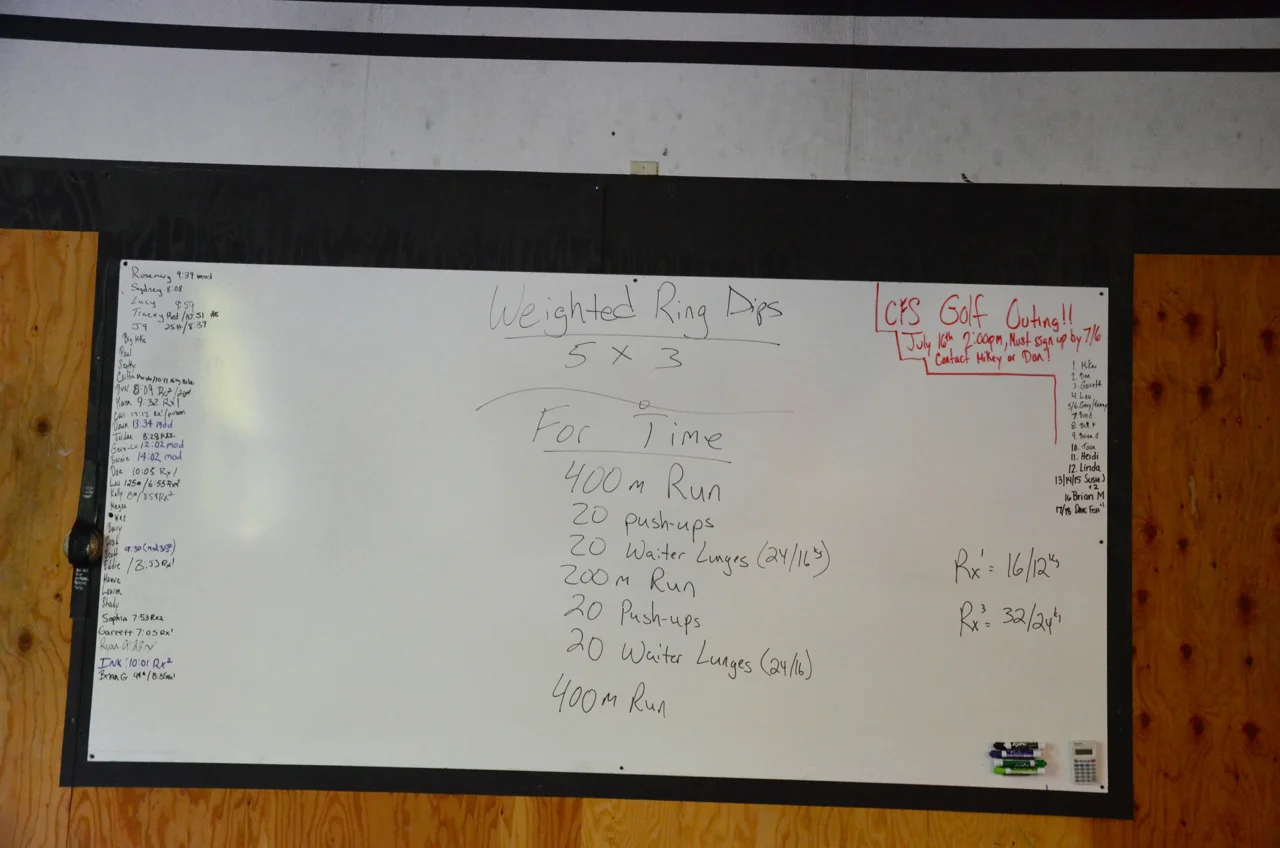 Rosemary 9:39 mod
Sydney 8:08
Lucy 9:59
Tracey Red/10:51
J9 25#/8:37
Big Mike
Paul
Scotty
8:09 Rx²
9:32 Rx1
Dawn 13:34 mod
Jordan 8:28 Rx2
12:02 mod
Bernie 14:02 mod
Dee 10:05 Rx1
Lou 125#/6:55 Rx²
Kelly
Megan
Wes
Barry
9:30
Eddie /8:53 Rx1
Lauren
Shady
Sophia 7:53 Rx2
Garrett 7:05 Rx1
Ryan
INK: 10:01 Rx²
Brian G
Weighted Ring Dips
5 x 3
For Time
400m Run
20 push-ups
20 Waiter Lunges (24/16kg)
200m Run
20 Push-ups
20 Waiter Lunges (24/16)
400m Run
CFS Golf Outing!!
July 16th 2:00pm, Must sign up by 7/6
Contact Mikey or Dan!
1. Mikey
2. Dan
3. Garrett
4. Lou
5/6. Gary/
7. Brad
8.
9. Brian G
10. Tom
11. Heidi
12. Linda
13/14/15 Susie J
+2
16 Brian M
17/18 Dave
Rx¹ = 16/12kg
Rx³ = 32/24kg